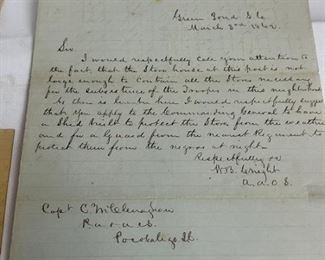 Green Pond S.C.
March 3rd 1862.
Sir
I would respectfully call your attention to
the fact, that the Store house at this post is not
large enough to contain all the Stores necessary
for the subsistence of the Troops in this neighborhood
As there is lumber here I would respectfully suggest
that you apply to the Commanding General to have
a Shed built to protect the Stores from the weather
and for a Guard from the nearest Regiment to
protect them from the negroes at night
Respectfully
W.B. Wright
A.A.C.S.
Capt C. McClenaghan
Pocotaligo